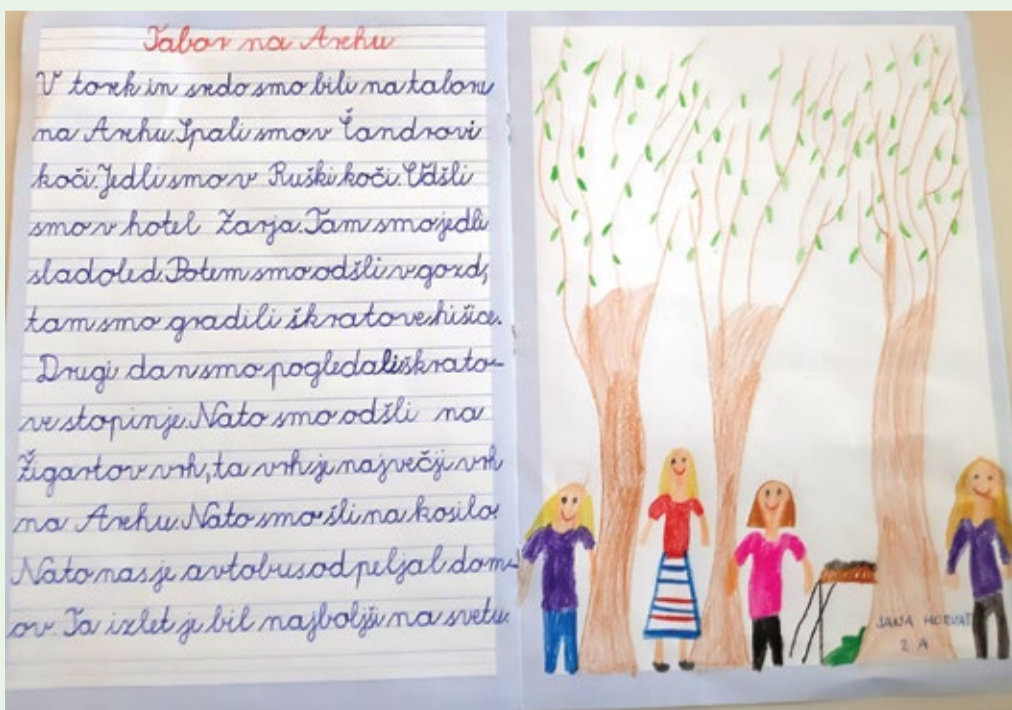 Tabor na Arehu
V torek in sredo smo bili na taboru
na Arehu. Spali smo v Čandrovi
koči. Jedli smo v Ruški koči. Odšli
smo v hotel Zarja. Tam smo jedli
sladoled. Potem smo odšli v gozd,
tam smo gradili škratove hišice.
Drugi dan smo pogledali škrato-
ve stopinje. Nato smo odšli na
Žigartov vrh, ta vrh je največji vrh
na Arehu. Nato smo šli na kosilo.
Nato nas je avtobus odpeljal dom-
ov. Ta izlet je bil najboljši na svetu.
JANA HORVAT
2. A